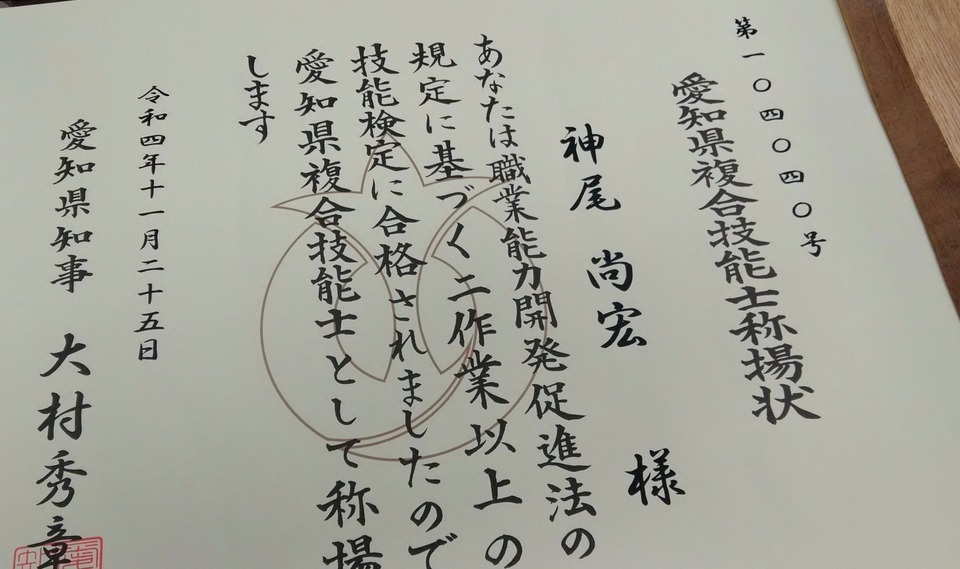 第一〇四〇〇四〇号
愛知県複合技能士称揚状
神尾 尚宏 様
あなたは職業能力開発促進法の
規定に基づく二作業以上の
技能検定に合格されましたので
愛知県複合技能士として称揚
します
令和四年十一月二十五日
愛知県知事 大村秀章